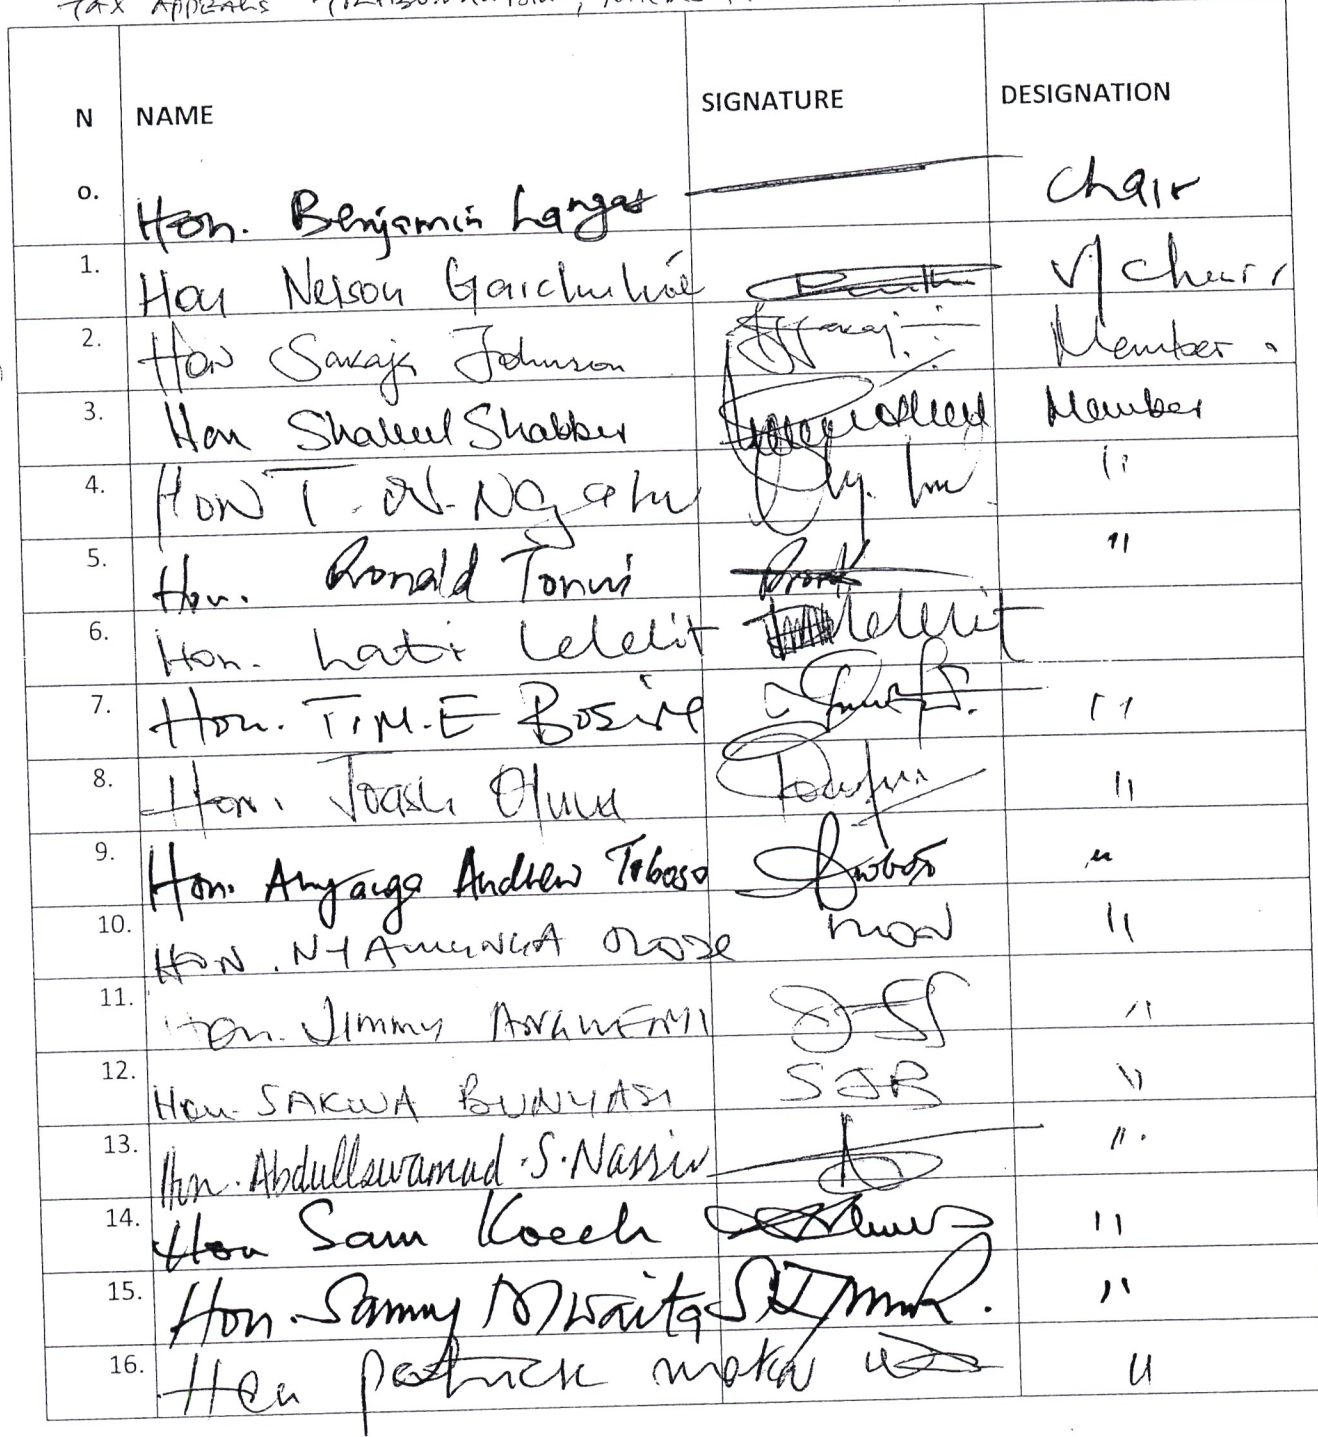 TAX APPEALS
N NAME SIGNATURE DESIGNATION
o. Hon. Benjamin Langat Chair
1. Hon Nelson Gaichuhie V/Chair
2. Hon Sakaja Johnson Member.
3. Hon Shakeel Shabbir Member
4. HON T. N. NGahu "
5. Hon. Ronald Tonui "
6. Hon. Lati Lelelit Lelelit
7. Hon. TIM.E Bosire "
8. Hon. Joash Olum "
9. Hon. Anyanga Andrew Toboso "
10. HON. NYAMUNGA "
11. Hon. JIMMY ANGWENYI "
12. Hon SAKWA BUNYASI SJB "
13. Hon. Abdullswamad .S. Nassir "
14. Hon Sam Koech "
15. Hon. Sammy Mwaita "
16. Hon patrick "